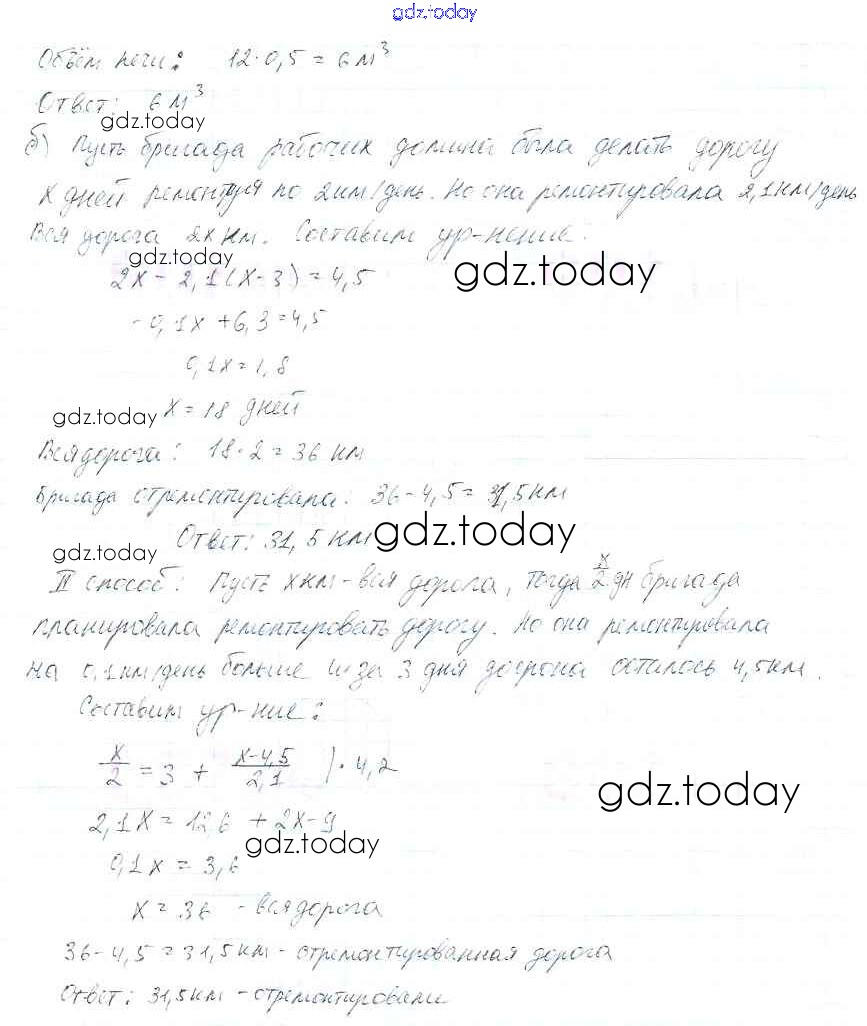 gdz.today
Объём печи: 12·0,5 = 6 м³
Ответ: 6 м³
gdz.today
б) Пусть бригада рабочих должна была делать дорогу
х дней ремонтируя по 2км/день. Но она ремонтировала 2,1км/день
Вся дорога 2х км. Составим ур-нение:
gdz.today
gdz.today
2х - 2,1(х-3) = 4,5
-0,1х + 6,3 = 4,5
0,1х = 1,8
gdz.today х = 18 дней
Вся дорога: 18·2 = 36 км
Бригада отремонтировала: 36-4,5 = 31,5км
Ответ: 31,5 км gdz.today
gdz.today
II способ: Пусть х км - вся дорога, тогда х/2 дн бригада
планировала ремонтировать дорогу. Но она ремонтировала
на 0,1км/день больше и за 3 дня до срока осталось 4,5км.
Составим ур-ние:
х/2 = 3 + х-4,5/2,1 | · 4,2
gdz.today
2,1х = 12,6 + 2х - 9
gdz.today
0,1х = 3,6
х = 36 - вся дорога
36-4,5 = 31,5 км - отремонтированная дорога
Ответ: 31,5км - отремонтировали